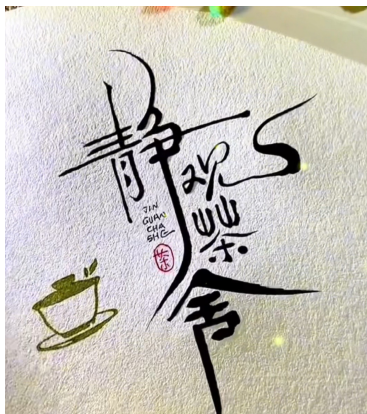 静观茶舍
JIN
GUAN
CHA
SHE
茶